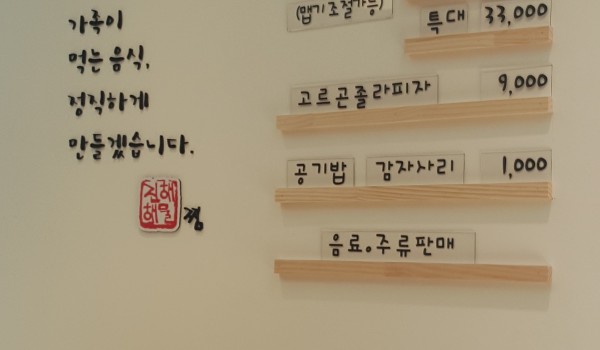 가족이
먹는 음식,
정직하게
만들겠습니다.
진해
해물
찜
(맵기조절가능)
특대 33,000
고르곤졸라피자 9,000
공기밥 감자사리 1,000
음료。주류판매